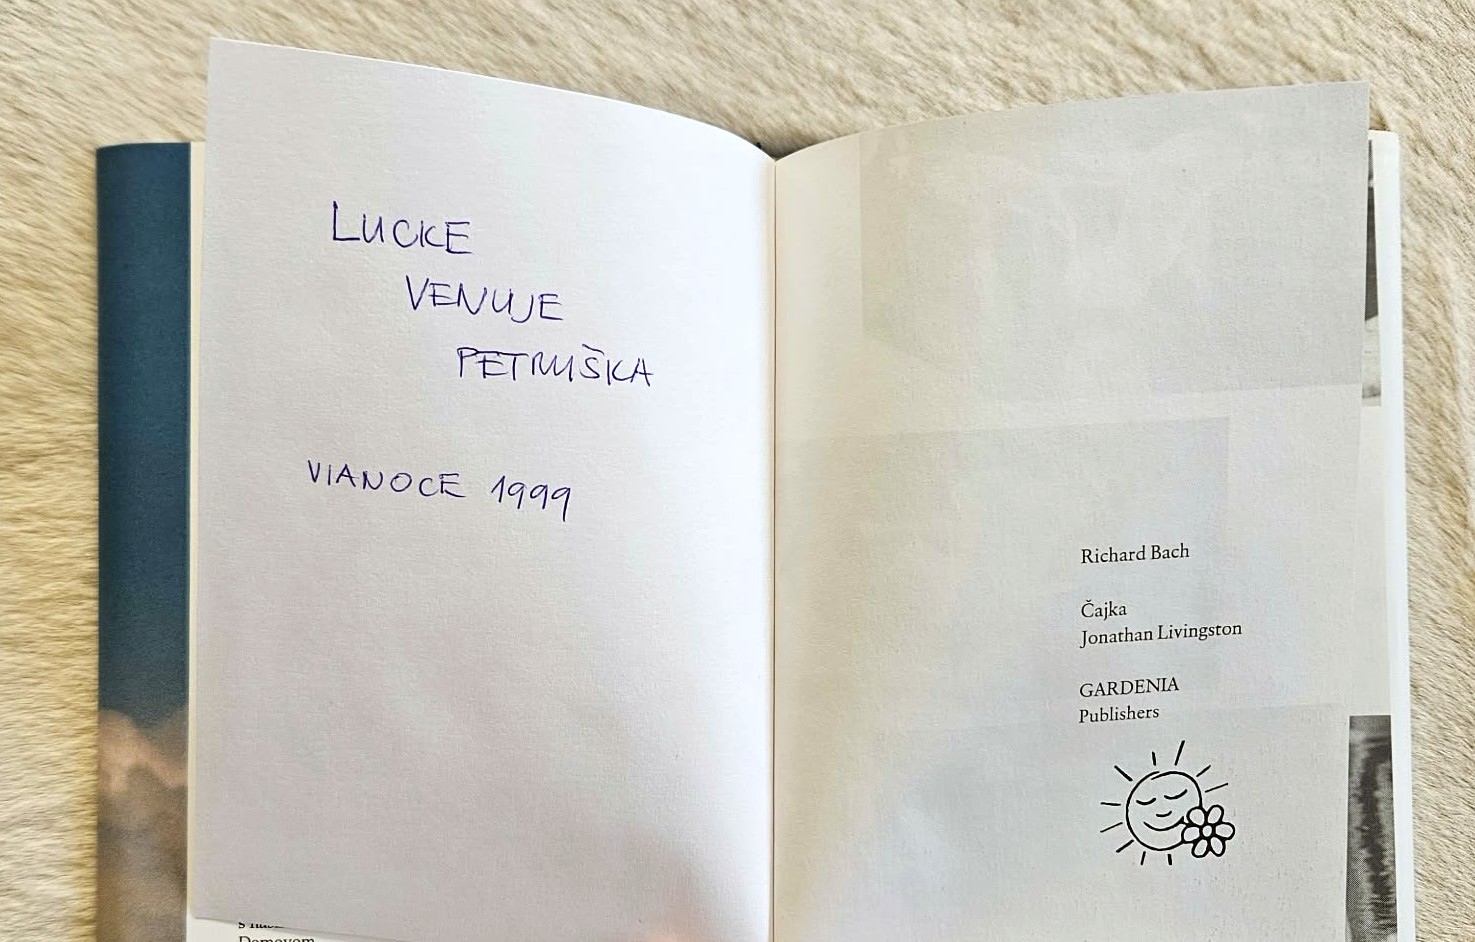 LUCKE
VENUJE
PETRUŠKA
VIANOCE 1999
Domovom
Richard Bach
Čajka
Jonathan Livingston
GARDENIA
Publishers